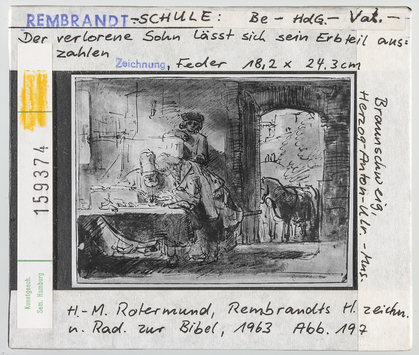 REMBRANDT-SCHULE: Be - HdG. - Vat. -
Der verlorene Sohn lässt sich sein Erbteil aus=
zahlen
Zeichnung, Feder 18,2 x 24,3 cm
Braunschweig,
Herzog-Anton-Ulr.-Mus.
159374
Kunstgesch.
Sem. Hamburg
H.-M. Rotermund, Rembrandts H.zeichn.
u. Rad. zur Bibel, 1963 Abb. 197